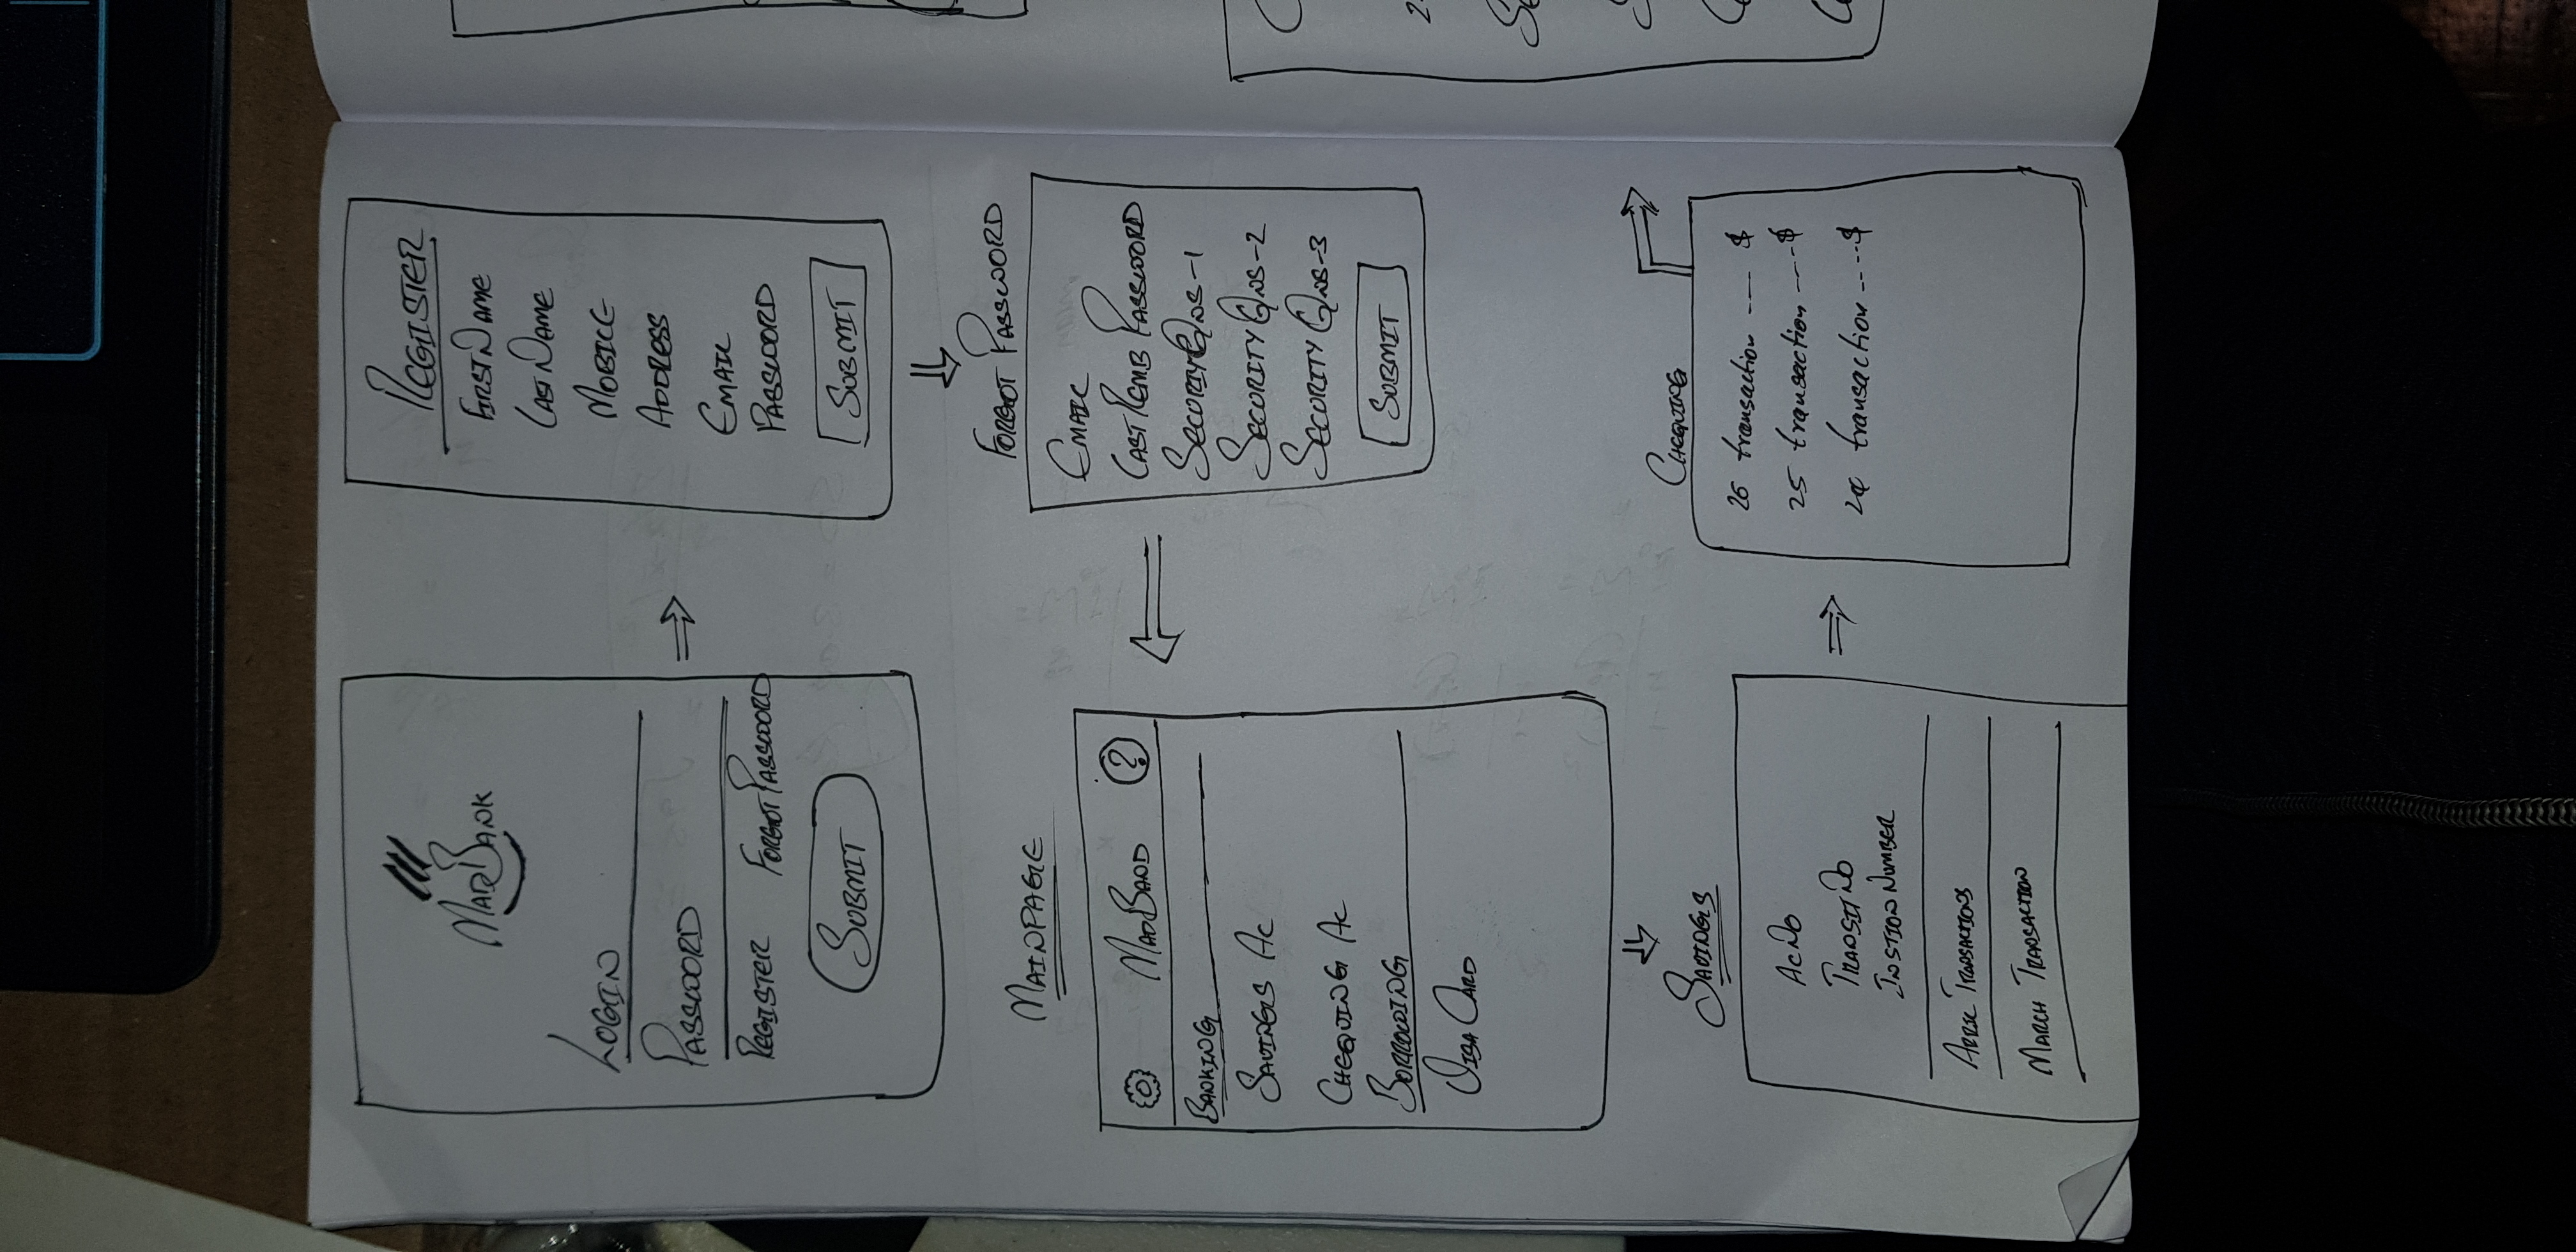 MADBANK
LOGIN
PASSWORD
REGISTER FORGOT PASSWORD
SUBMIT
REGIISTER
FIRST NAME
LAST NAME
MOBILE
ADDRESS
EMAIL
PASSWORD
SUBMIT
FORGOT PASSWORD
EMAIL
LAST REMB PASSWORD
SECURITY QNS-1
SECURITY QNS-2
SECURITY QNS-3
SUBMIT
MAINPAGE
MADBAND
?
BANKING
SAVINGS AC
CHEQUING AC
BORROWING
VISA CARD
SAVINGS
AC NO
TRANSIT NO
INSTION NUMBER
APRIL TRANSACTIONS
MARCH TRANSACTION
CHEQUING
26 transaction --- $
25 transaction ---- $
24 transaction ---- $